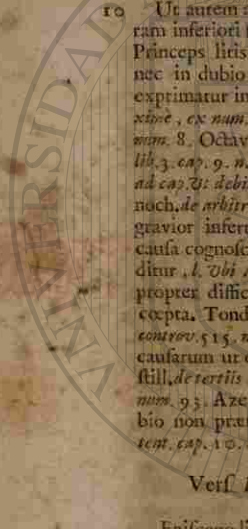 10 Ut autem a
ram inferiori
Princeps litis
nec in dubio
exprimatur in
xime, ex num.
num. 8. Octav
lib. 3. cap. 9. n.
ad cap. Ut debi
noch. de arbitr
gravior infert
causa cognosc
ditur, l. Ubi
propter diffic
cœpta. Tond
controv. 515. n
causarum ut
still. de tertiis
num. 93. Aze
bio non præ
tent. cap. 10.
Vers.
Episcop